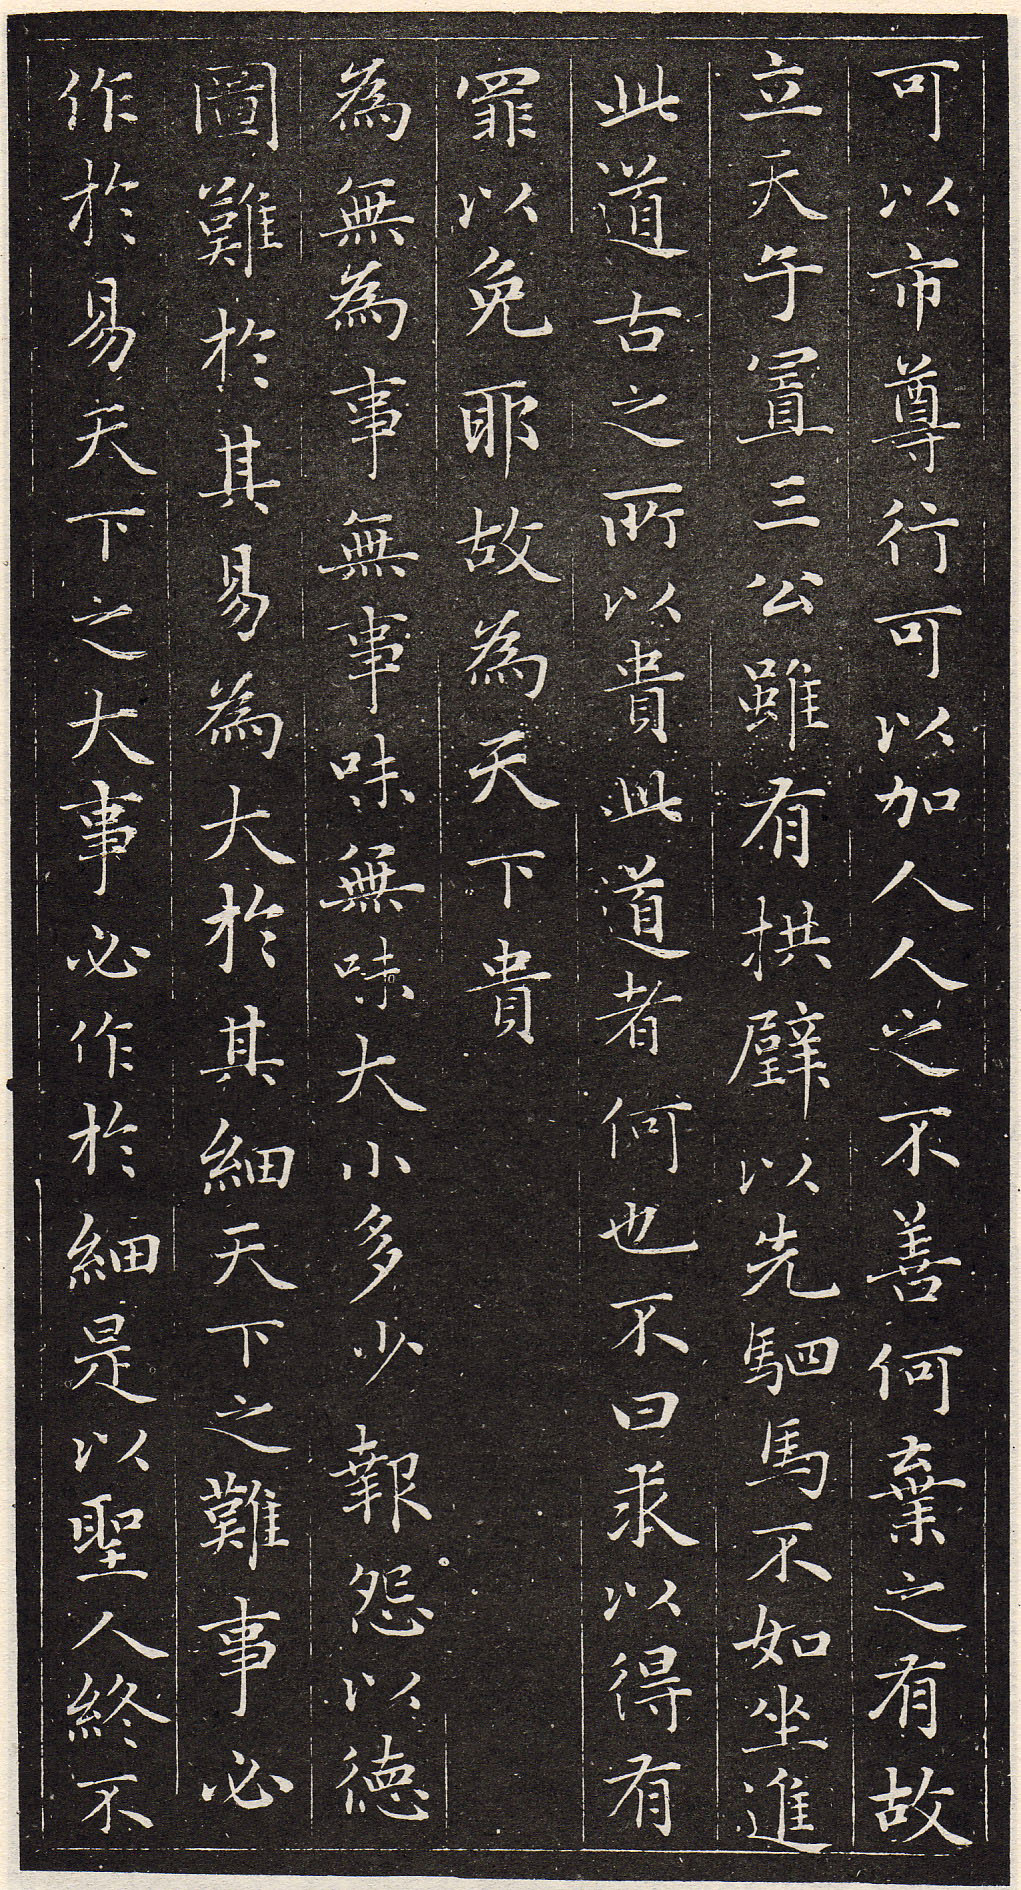 可以市尊行可以加人人之不善何棄之有故
立天子置三公雖有拱璧以先駟馬不如坐進
此道古之所以貴此道者何也不曰求以得有
罪以免耶故為天下貴
為無為事無事味無味大小多少報怨以德
圖難於其易為大於其細天下之難事必
作於易天下之大事必作於細是以聖人終不